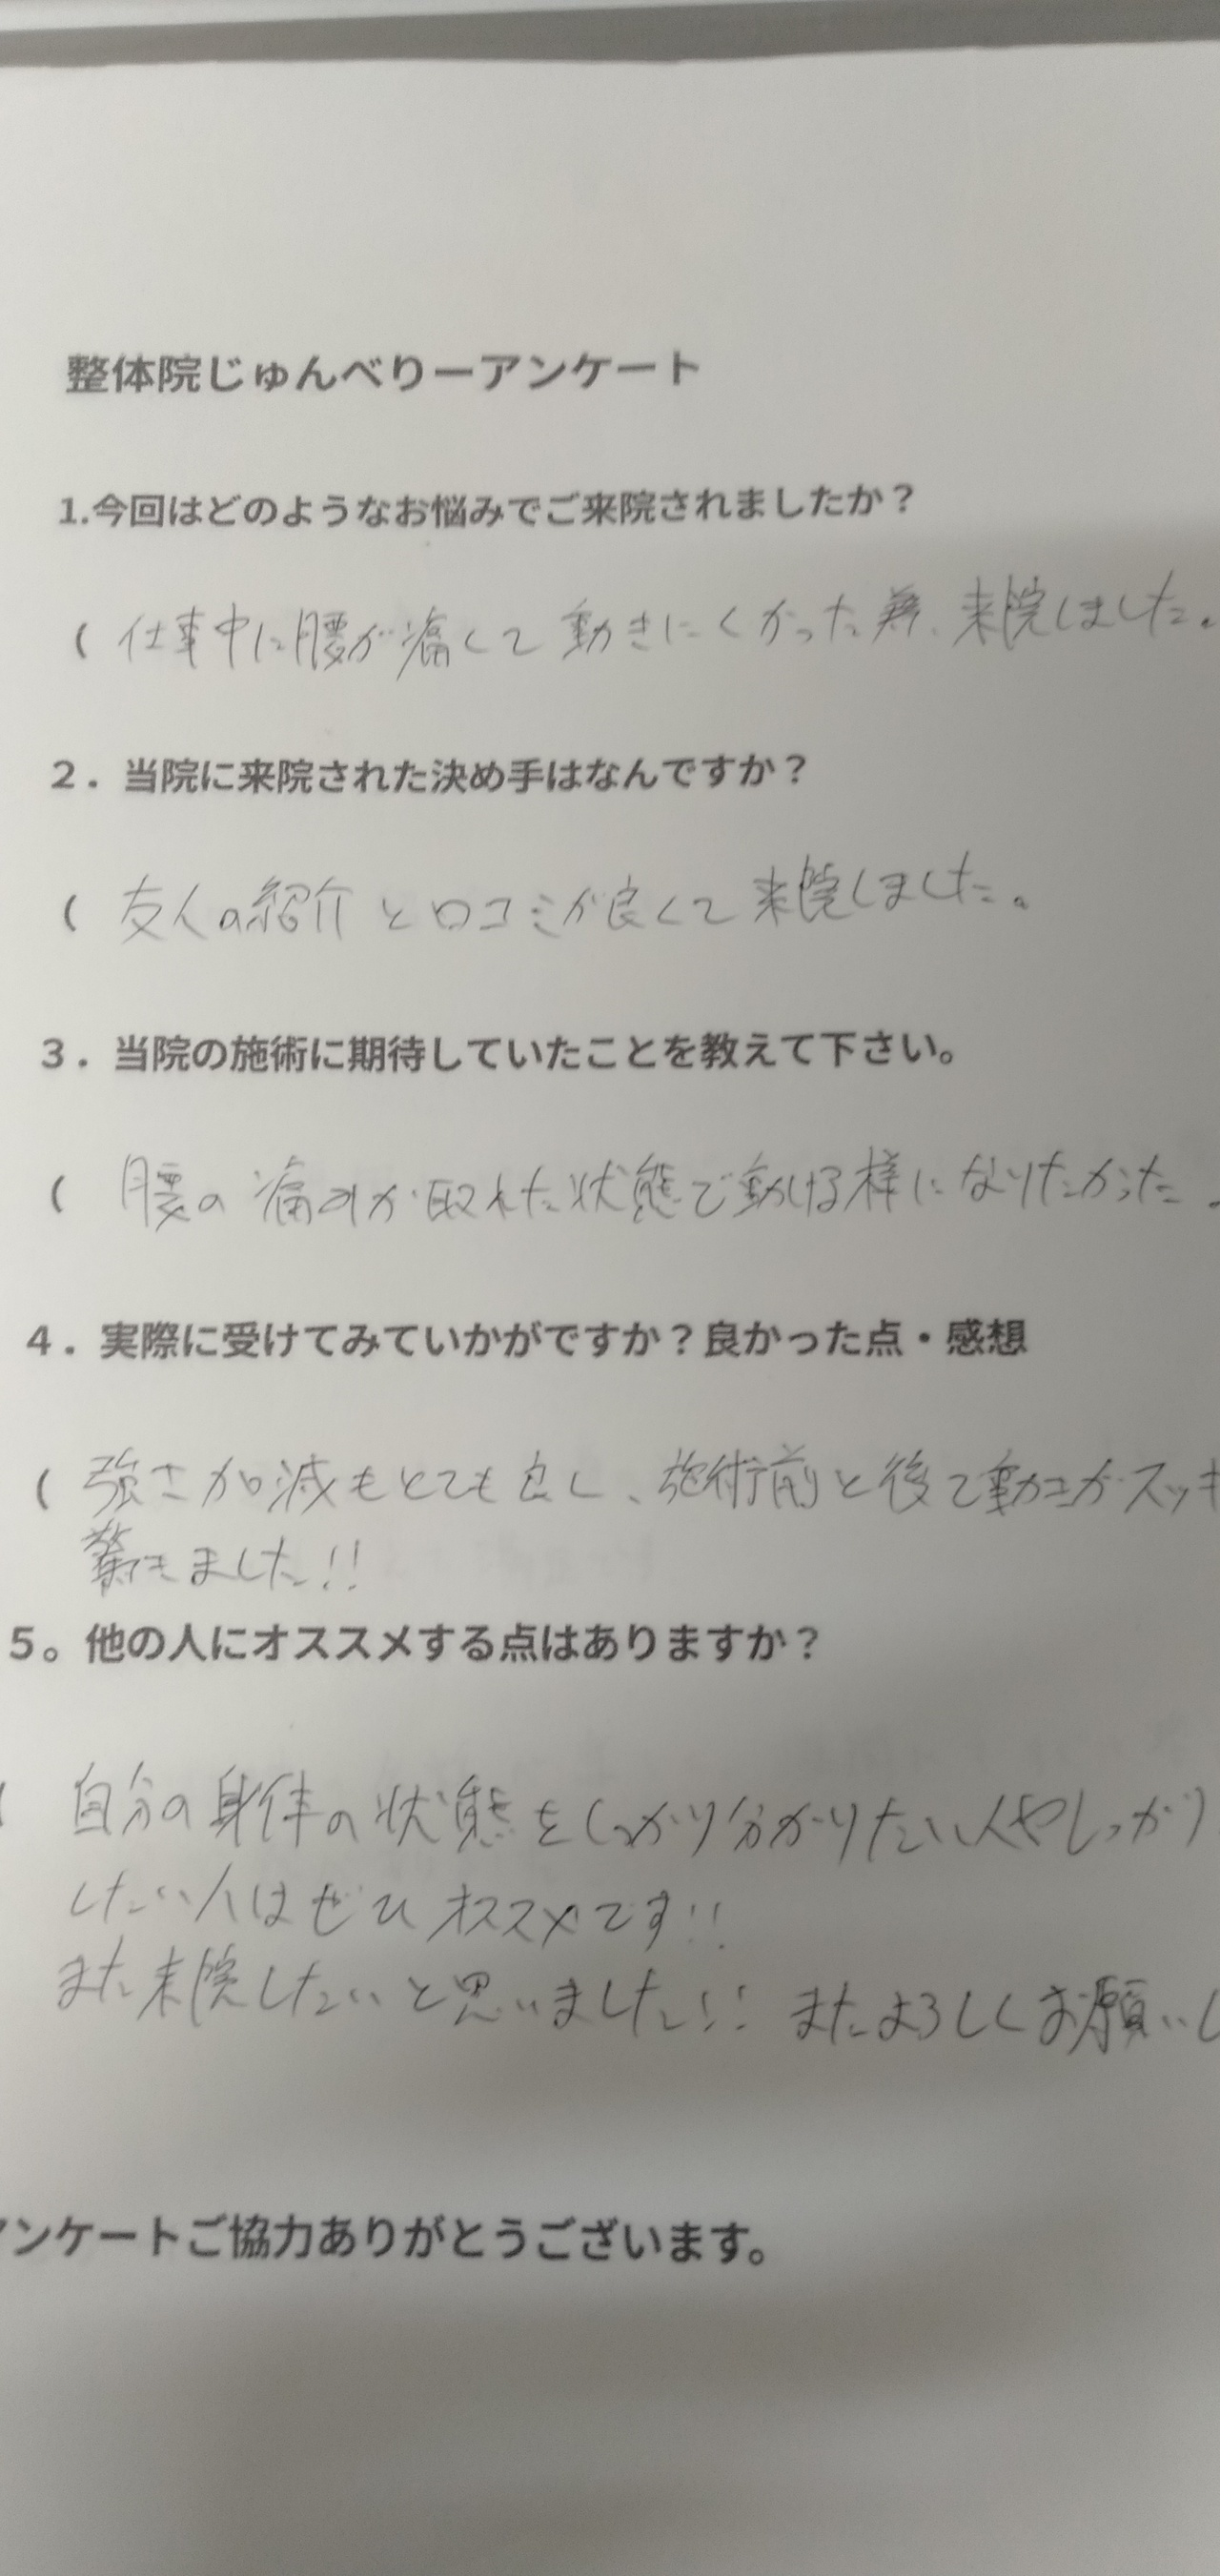 整体院じゅんべりーアンケート
1.今回はどのようなお悩みでご来院されましたか？
( 仕事中に腰が痛くて動きにくかった為、来院しました。
２．当院に来院された決め手はなんですか？
( 友人の紹介と口コミが良くて来院しました。
３．当院の施術に期待していたことを教えて下さい。
( 腰の痛みが取れた状態で動ける様になりたかった。
４．実際に受けてみていかがですか？良かった点・感想
( 強さ加減もとても良く、施術前と後で動きがスッキ
驚きました!!
５。他の人にオススメする点はありますか？
( 自分の身体の状態をしっかり分かりたい人やしっかり
したい人はぜひオススメです!!
また来院したいと思いました!! またよろしくお願いし
アンケートご協力ありがとうございます。